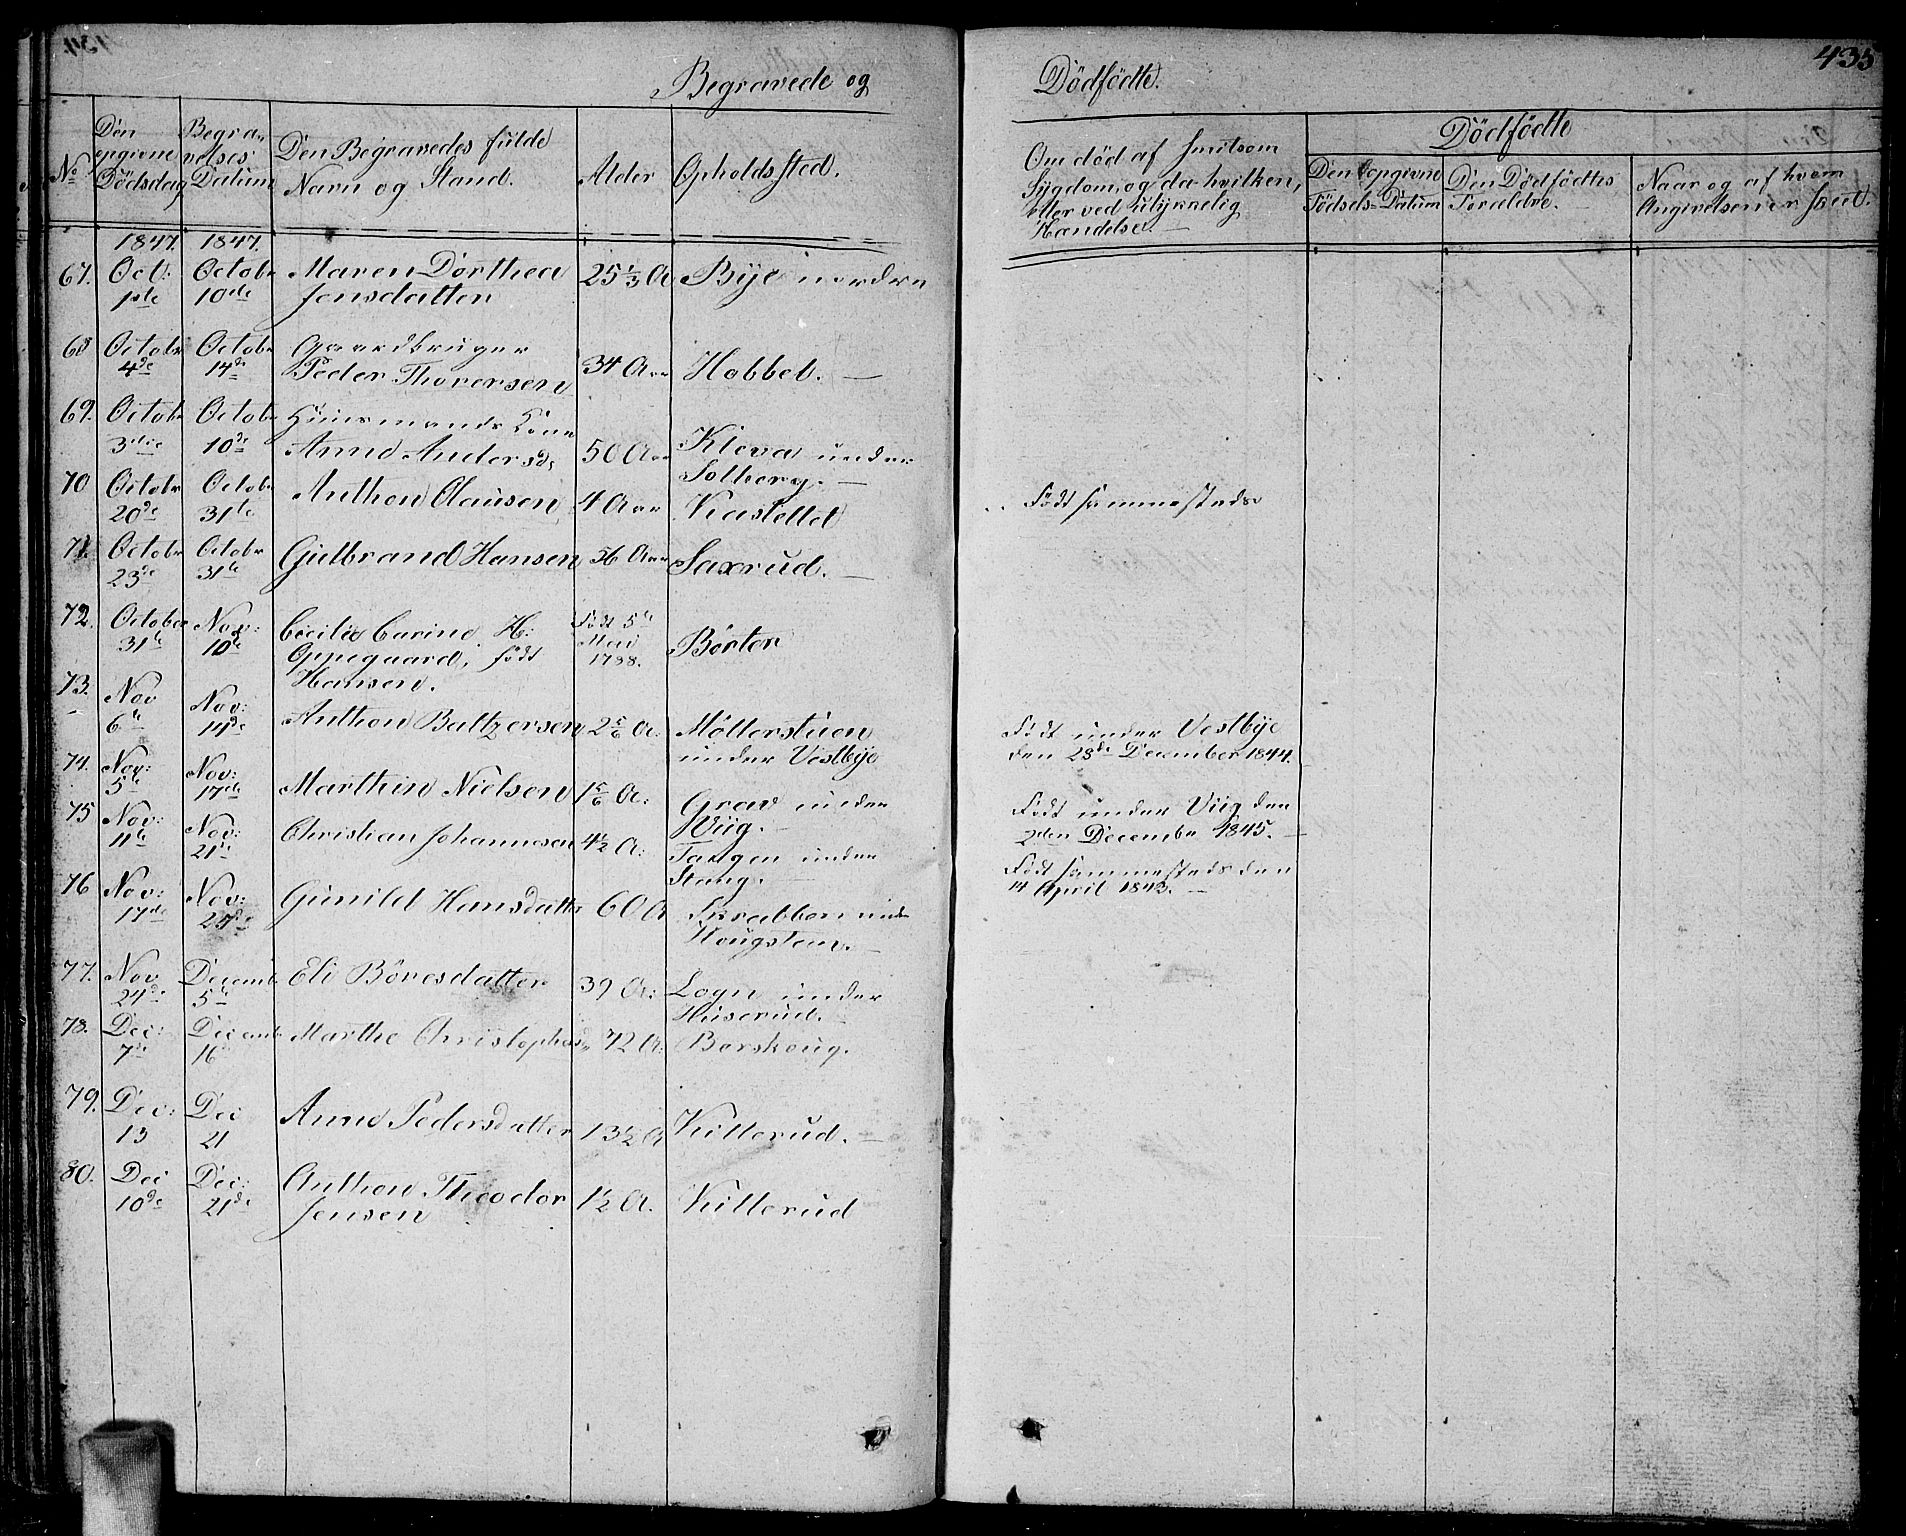 435
Begravede og Dödfödte.
No
Den opgivne Dödsdag
Begravelses Datum
Den Begravedes fulde Navn og Stand.
Alder
Opholdssted.
Om död af smitsom Sygdom, og da hvilken, eller ved ulykkelig Hændelse. —
Dødfödte
Den Opgivne Födsels-Datum
Den Dödfödtes Forældre. —
Naar og af hvem Angivelsen er skeed.
1847. 1847.
67. Oct: 1ste Octobr 10de Maren Dorthea Jensdatter 25 1/3 A Bye nordre
68 Octobr 4de Octobr 14de Gaardbruger Peder Thorersen 34 Aar Hobbel. —
69. Octobr 3die Octobr 10de Huusmands Kone Anne Andersd: 50 Aar Kleva under Solberg. —
70 Octobr 20de Octobr 31te Anthon Olausen 4 Aar Kastellet Födt sammesteds
71. Octobr 23de Octobr 31te Gulbrand Hansen 36 Aar Saxrud. —
72. October 31te Nov: 10de Cecilie Carine H: Oppegaard, födt Hansen. Födt 5te Mai 1788. Börter
73. Nov 6te Nov: 14de Anthon Baltzersen 2 5/6 A: Möllerstuen under Vestbye Födt under Vestbye den 28de December 1844.
74. Nov: 5te Nov: 17de Marthin Nielsen 1 5/6 A: Grav under Wiig. — Födt under Viig den 2den Decembr 1845. —
75 Nov: 11te Nov: 21de Christian Johannesen 4 1/2 A: Tangen under Stang. — Födt sammesteds den 14 April 1843. —
76 Nov: 17de Nov: 25de Gunild Hansdatter 60 A Skrabben under Hougsten. —
77. Nov 24de Decemb 5te Eli Böresdatter 39 A: Logn under Huserud. —
78. Dec: 7de Decemb 16 Marthe Christophersd: 72 A: Borskoug.
79. Dec: 13 Dec 21 Anne Pedersdatter 13 1/2 A Kullerud. —
80. Dec 10de Dec: 21de Anthon Theodor Jensen 1 1/2 A. Kullerud